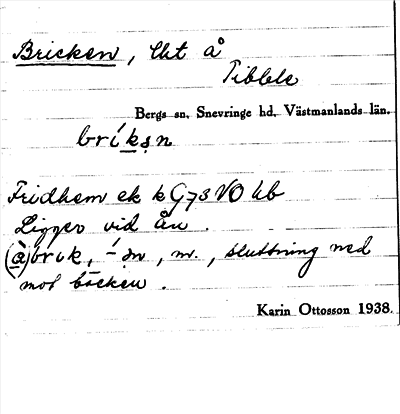 Bricken, lht å
Tibble
Bergs sn. Snevringe hd. Västmanlands län.
bríksn
Fridhem ek k G73 VO Ub
Ligger vid ån .
(à) brik, -́ ən, m., sluttning ned
mot bäcken .
Karin Ottosson 1938.